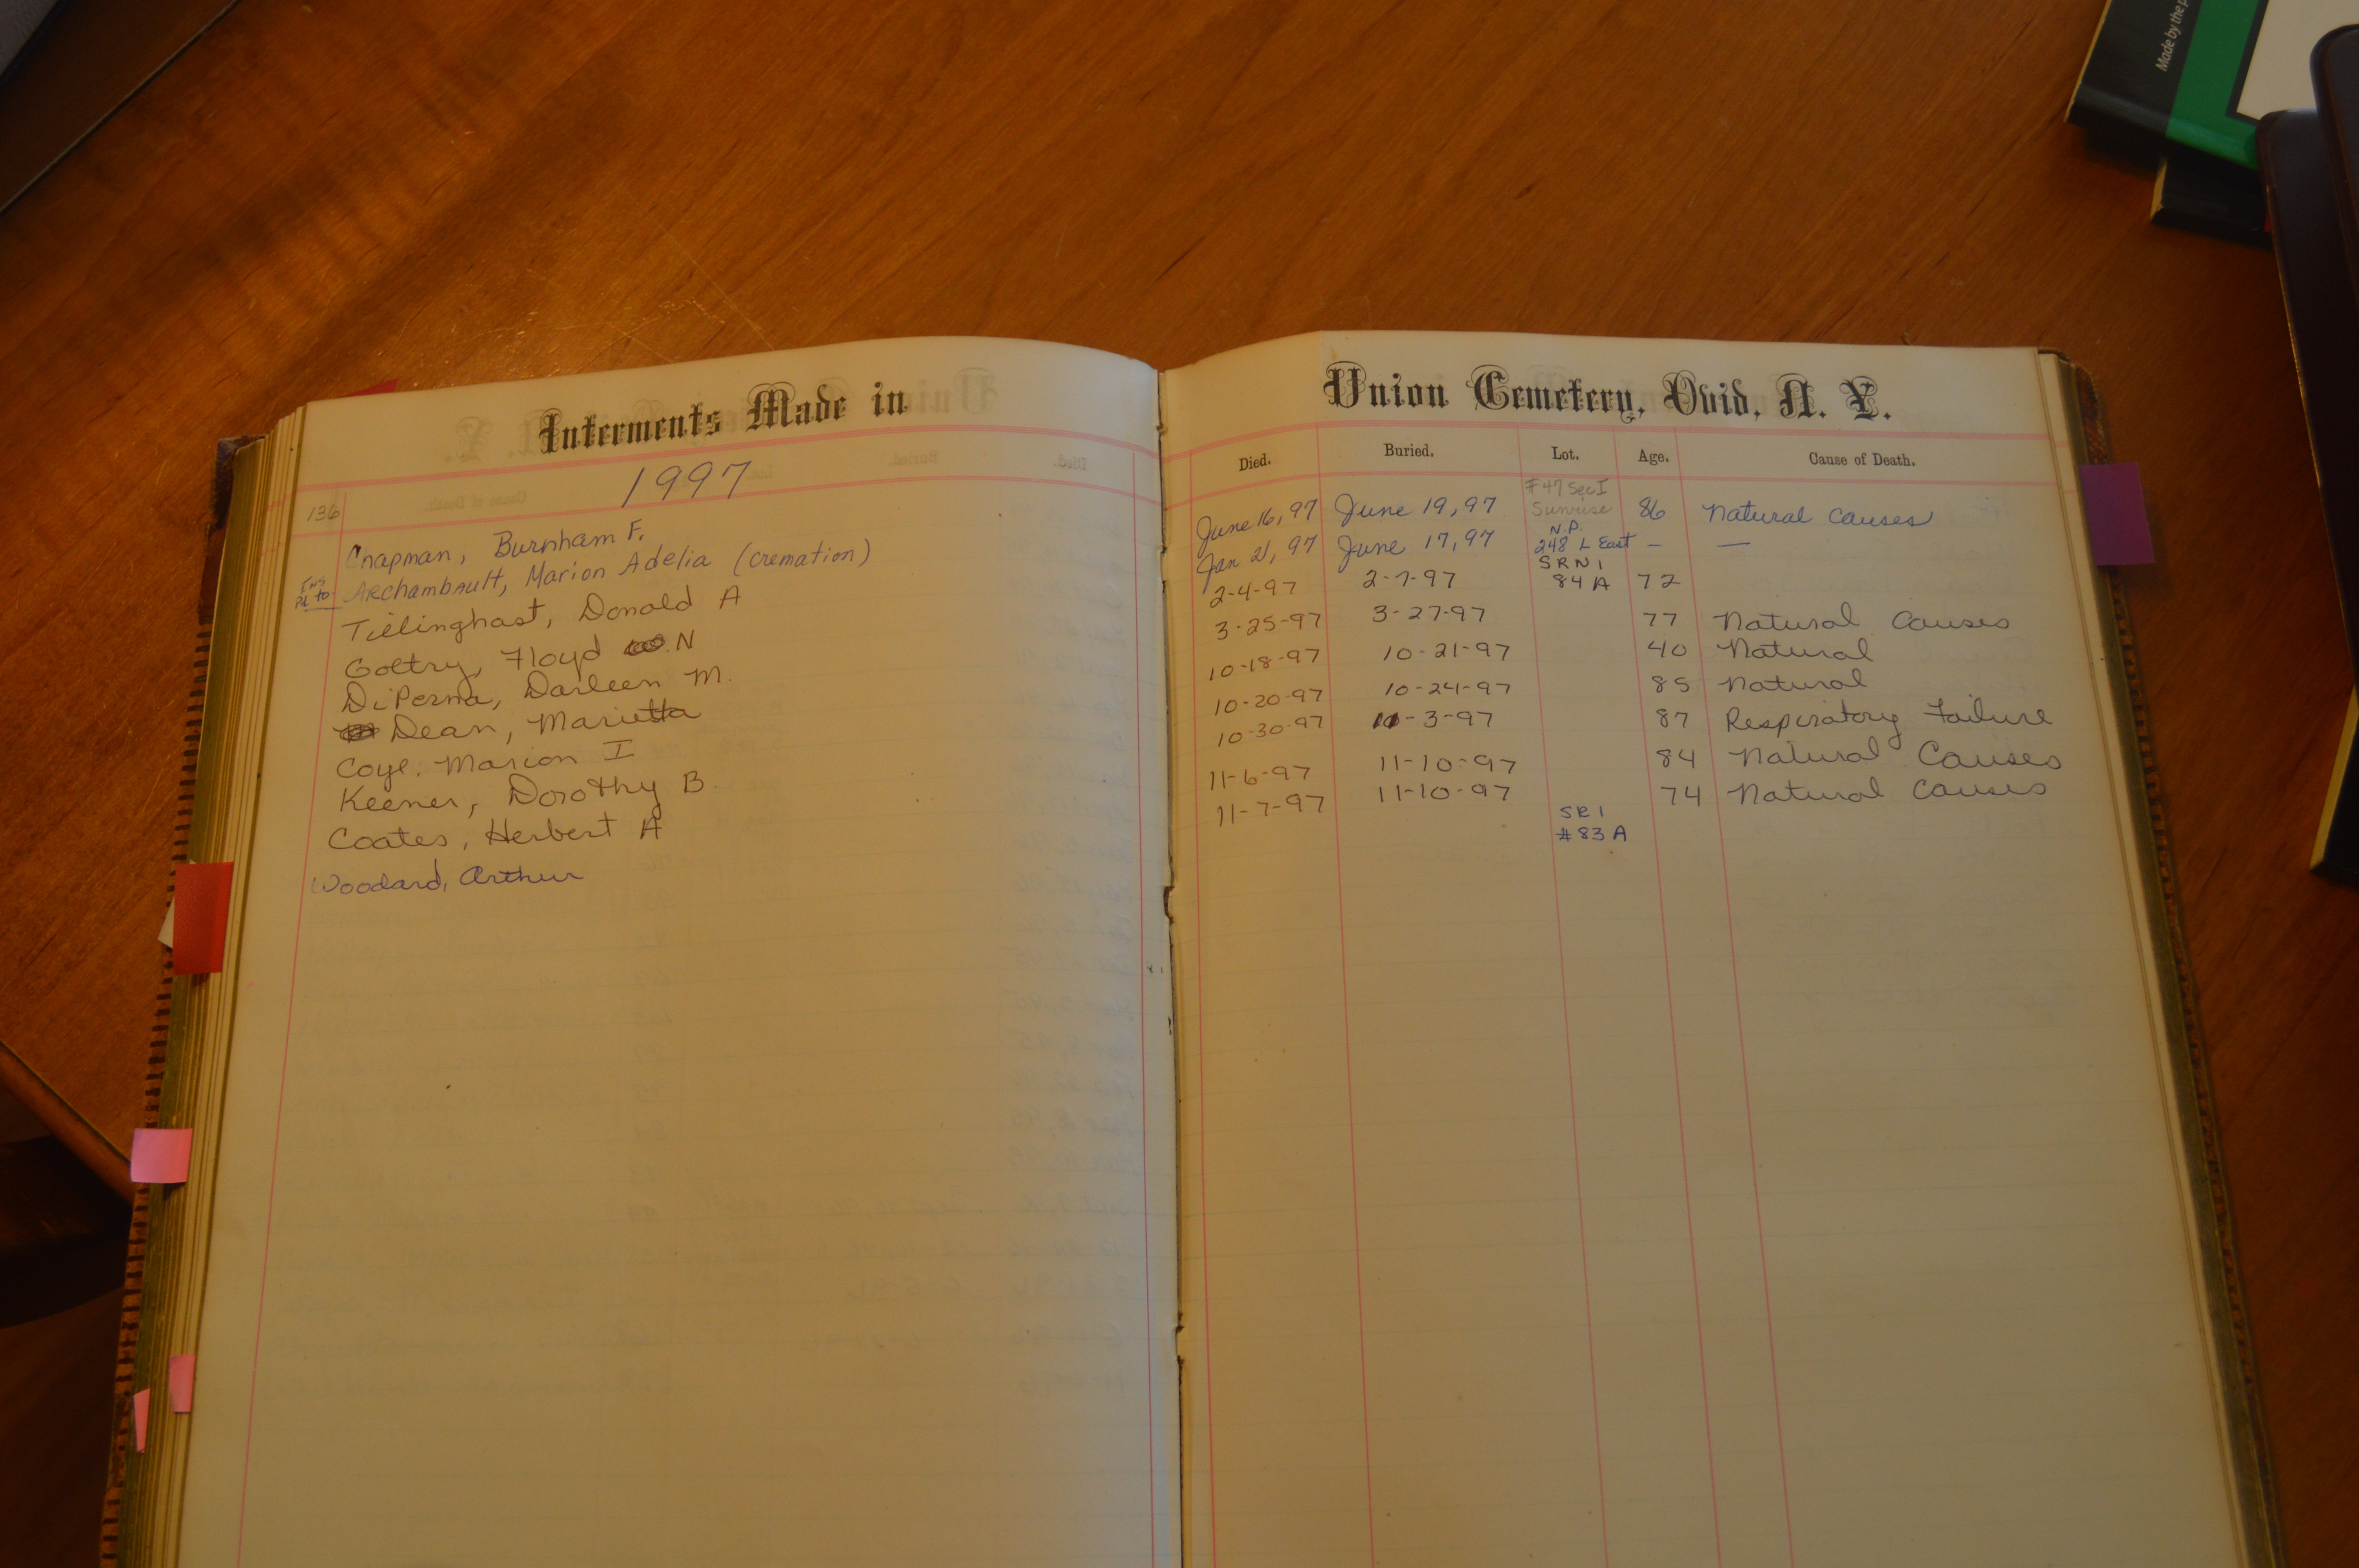 Made by the
Interments Made in
1997
136
Chapman, Burnham F.
Archambault, Marion Adelia (cremation)
Tillinghast, Donald A
Goltry, Floyd N
DiPerna, Darleen M.
Dean, Marietta
Coye. Marion I
Keener, Dorothy B.
Coates, Herbert A
Woodard, Arthur
Union Cemetery, Ovid, N. Y.
Died. Buried. Lot. Age. Cause of Death.
#47 Sec I
June 16, 97 June 19, 97 Sunrise 86 Natural Causes
N.P.
Jan 21, 97 June 17, 97 248 L East — —
SRN1
2-4-97 2-7-97 84 A 72
3-25-97 3-27-97 77 Natural Causes
10-18-97 10-21-97 40 Natural
10-20-97 10-24-97 85 Natural
10-30-97 11-3-97 87 Respiratory Failure
11-6-97 11-10-97 84 Natural Causes
11-7-97 11-10-97 74 Natural Causes
SR1
#83 A